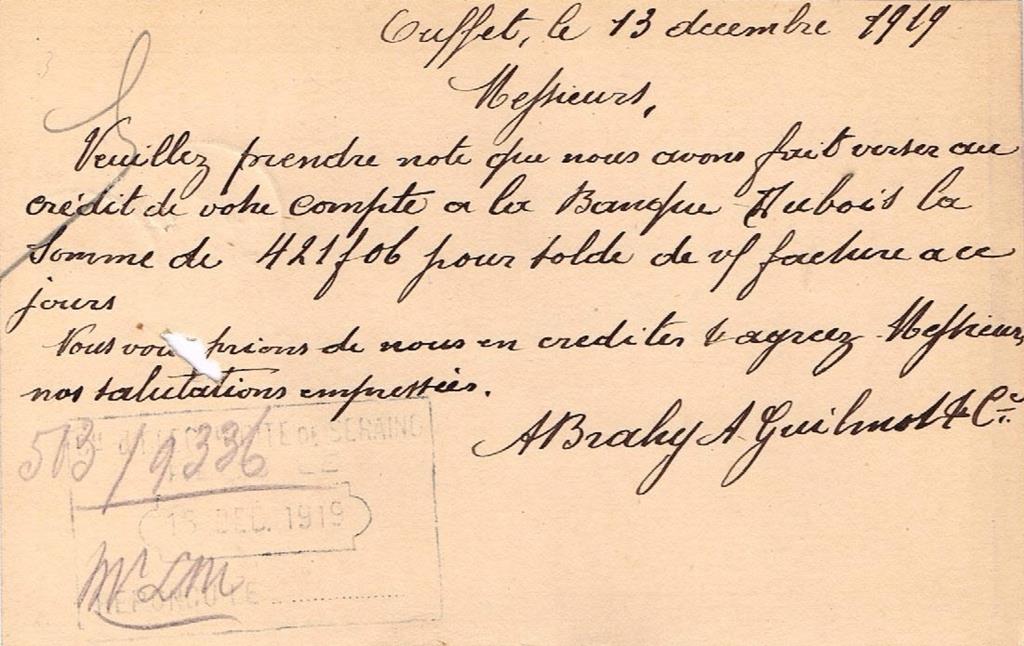 Ouffet, le 13 decembre 1919
Messieurs,
Veuillez prendre note que nous avons fait verser au
crédit de votre compte a la Banque Dubois la
somme de 421f06 pour solde de v/ facture a ce
jours
Nous vous prions de nous en crediter & agreez Messieurs
nos salutations empressées.
A Brahy A Guilmot & Cie
513/9336
DE SERAING
15 DEC. 1919
REPONDU LE